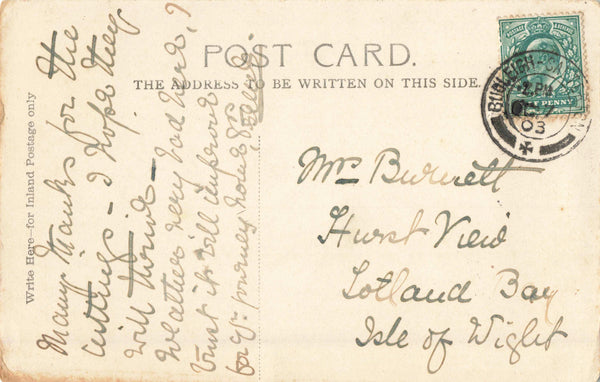 POST CARD.
THE ADDRESS TO BE WRITTEN ON THIS SIDE.
Write Here—for Inland Postage only
Many thanks for the
cuttings — I hope they
will thrive —
Weather very bad here, I
trust it will improve
for yr. journey home
Mrs Burnett
Hurst View
Totland Bay
Isle of Wight
BUDLEIGH
2 PM
03
PENNY